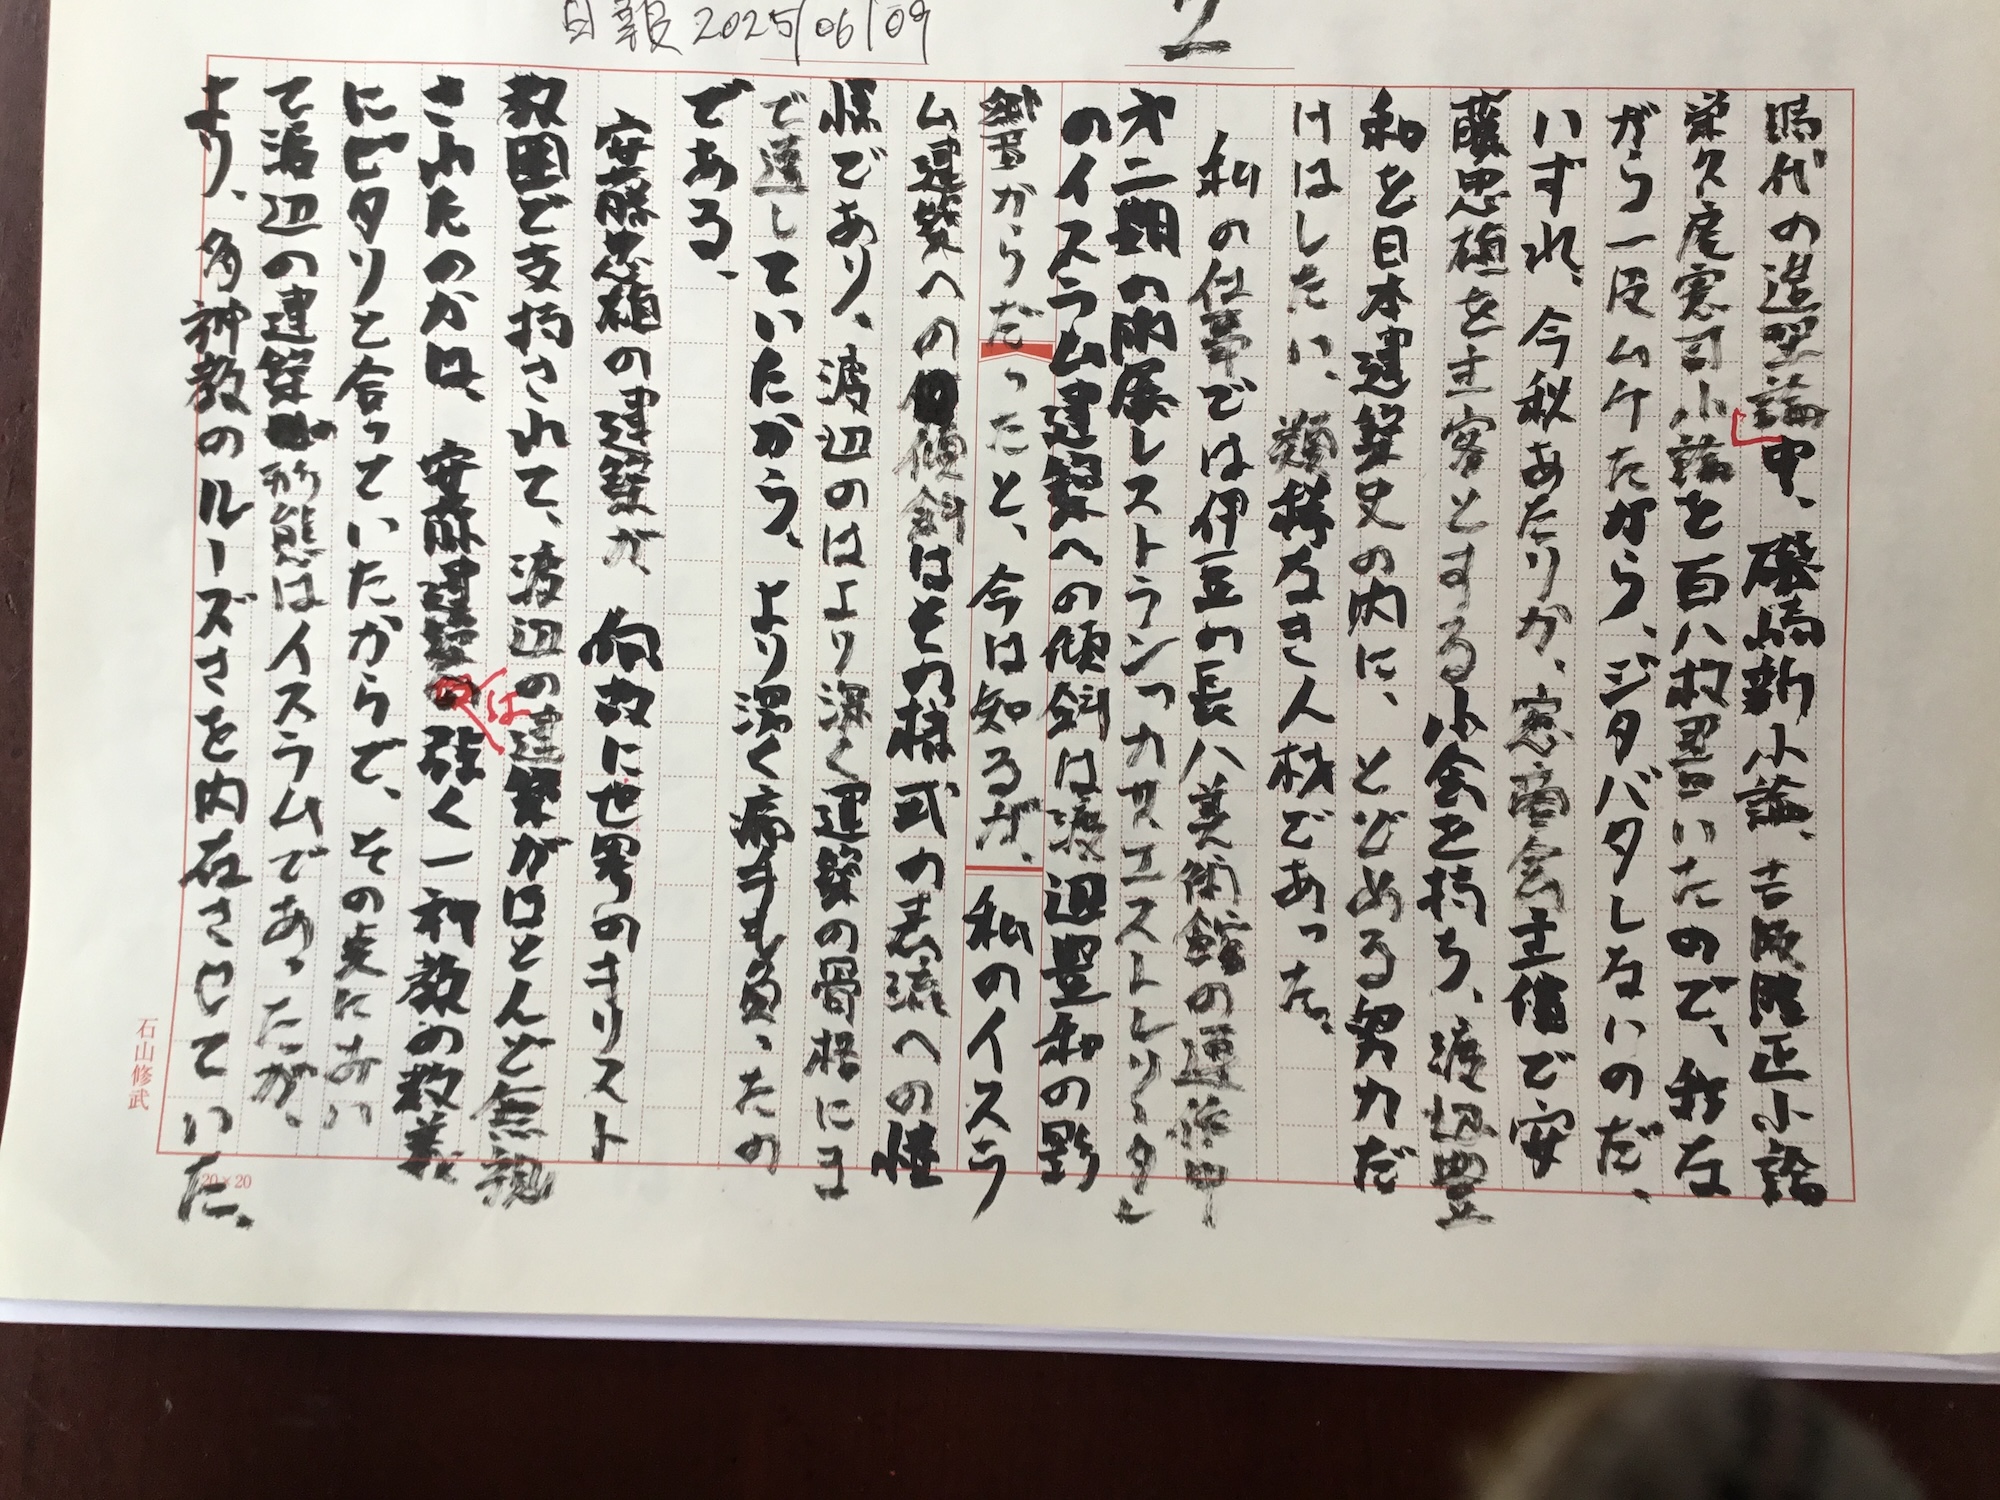 日報 2025/06/09
2
時代の造型論中、磯崎新小論、吉阪隆正小論
栄久庵憲司小論を百八枚書いたので、我な
がら一段ムケたから、ジタバタしないのだ、
いずれ、今秋あたりか、窓菌会主催で安
藤忠雄を主客とする小会を持ち、渡辺豊
和を日本建築史の内に、とどめる努力だ
けはしたい、類稀なき人材であった。
私の仕事では伊豆の長八美術館の運作中
才二期の開展レストラン「カサエストレリータ」
のイスラム建築への傾斜は渡辺豊和の影
響からだったと、今は知るが、私のイスラ
ム建築への傾斜はその様式の表流への憧
憬であり、渡辺のはより深く建築の骨格にま
で達していたから、より深く痛手も負ったの
である、
安藤忠雄の建築が、何故に世界のキリスト
教国で支持されて、渡辺の建築がほとんど無視
されたのかは、安藤建築は強く一神教の教義
にピタリと合っていたからで、その支におい
て渡辺の建築形態はイスラムであったが、
より、多神教のルーズさを内在させていた。
石山修武
20×20